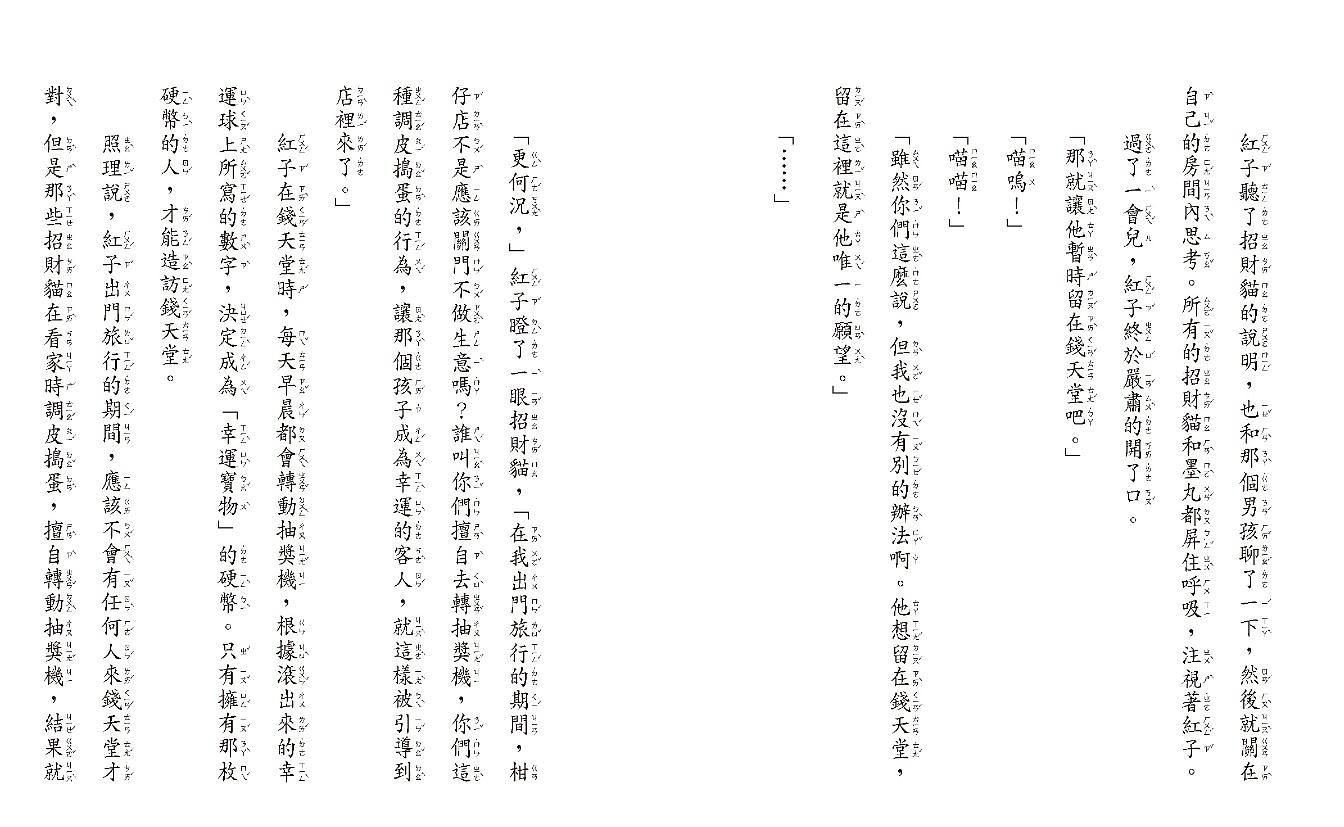 紅子聽了招財貓的說明，也和那個男孩聊了一下，然後就關在
自己的房間內思考。所有的招財貓和墨丸都屏住呼吸，注視著紅子。
過了一會兒，紅子終於嚴肅的開了口。
「那就讓他暫時留在錢天堂吧。」
「喵嗚！」
「喵喵！」
「雖然你們這麼說，但我也沒有別的辦法啊。他想留在錢天堂，
留在這裡就是他唯一的願望。」
「……」
「更何況，」紅子瞪了一眼招財貓，「在我出門旅行的期間，柑
仔店不是應該關門不做生意嗎？誰叫你們擅自去轉抽獎機，你們這
種調皮搗蛋的行為，讓那個孩子成為幸運的客人，就這樣被引導到
店裡來了。」
紅子在錢天堂時，每天早晨都會轉動抽獎機，根據滾出來的幸
運球上所寫的數字，決定成為「幸運寶物」的硬幣。只有擁有那枚
硬幣的人，才能造訪錢天堂。
照理說，紅子出門旅行的期間，應該不會有任何人來錢天堂才
對，但是那些招財貓在看家時調皮搗蛋，擅自轉動抽獎機，結果就